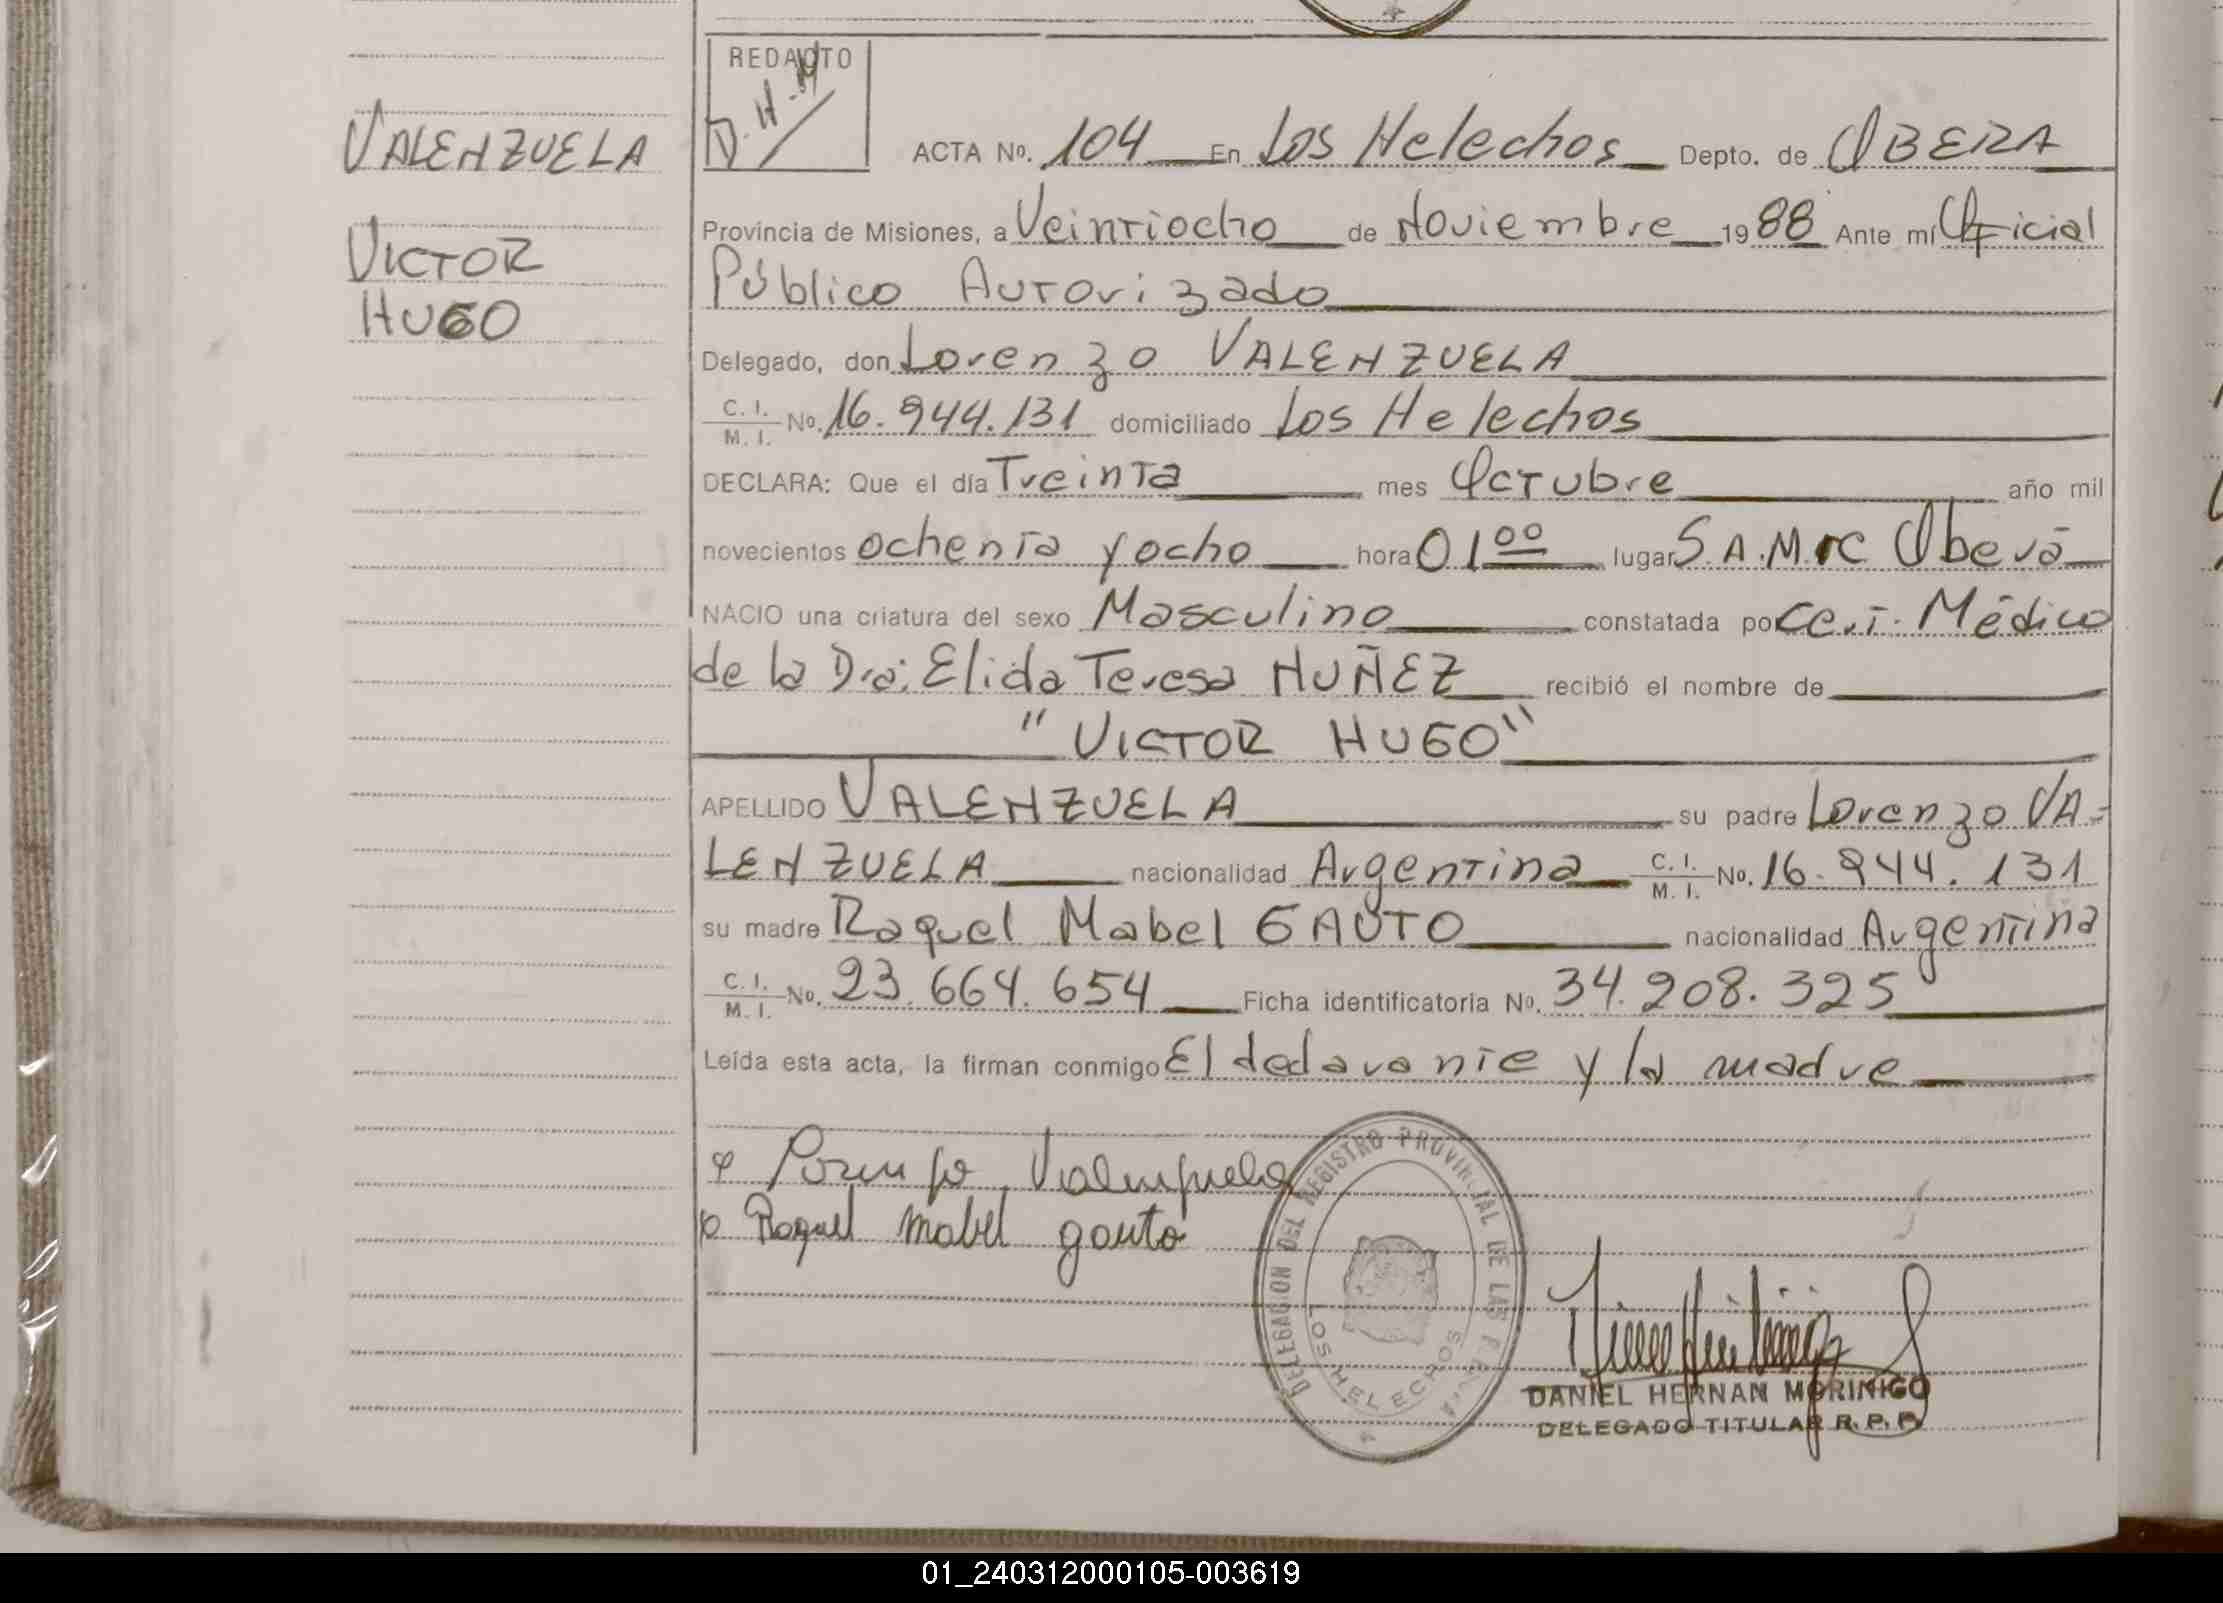 REDACTO
D. H. M
VALENZUELA
ACTA No. 104 En Los Helechos Depto. de OBERA
VICTOR
HUGO
Provincia de Misiones, a Veintiocho de Noviembre 1988 Ante mí Oficial
Público Autorizado
Delegado, don Lorenzo VALENZUELA
C. I.
M. I. No. 16.944.131 domiciliado Los Helechos
DECLARA: Que el día Treinta mes Octubre año mil
novecientos ochenta y ocho hora 01 00 lugar S.A.M.I.C Oberá
NACIO una criatura del sexo Masculino constatada por Cert. Médico
de la Dra: Elida Teresa NUÑEZ recibió el nombre de
"VICTOR HUGO"
APELLIDO VALENZUELA su padre Lorenzo VA=
LENZUELA nacionalidad Argentina C. I. M. I. No. 16.944.131
su madre Raquel Mabel GAUTO nacionalidad Argentina
C. I.
M. I. No. 23.664.654 Ficha identificatoria No. 34.208.325
Leída esta acta, la firman conmigo El declarante y la madre
Lorenzo Valenzuela
Raquel Mabel gauto
DELEGACION DEL REGISTRO PROVINCIAL DE LAS
LOS HELECHOS
DANIEL HERNAN MORINIGO
DELEGADO TITULAR R. P. P.
01_240312000105-003619